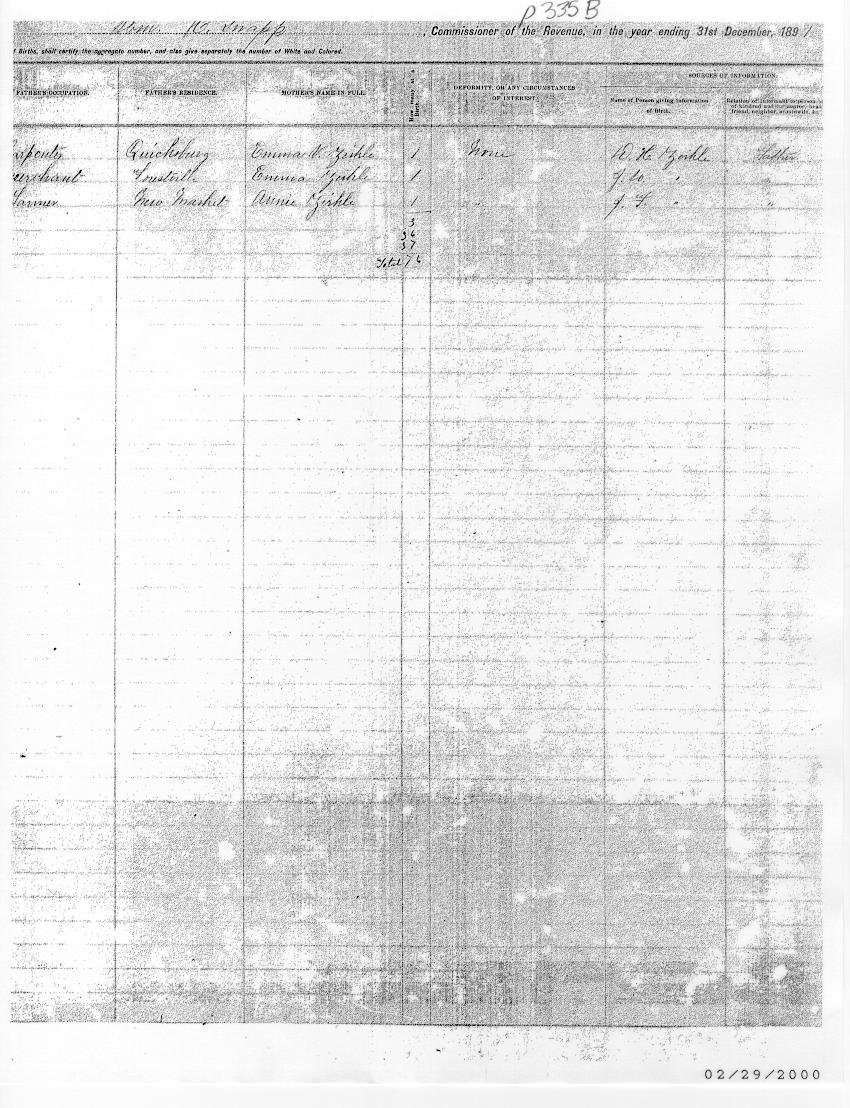 p 335 B
Wm. H. Snapp, Commissioner of the Revenue, in the year ending 31st December, 1891
f Births, shall certify the aggregate number, and also give separately the number of White and Colored.
SOURCES OF INFORMATION.
FATHER'S OCCUPATION. FATHER'S RESIDENCE. MOTHER'S NAME IN FULL. How many at a Birth. DEFORMITY, OR ANY CIRCUMSTANCES OF INTEREST. Name of Person giving Information of Birth.
arpenter Quicksburg Emma V. Zirkle 1 None D. H. Zirkle Father
erchant Forestville Emma Zirkle 1 " J. W. " "
Farmer New Market Annie Zirkle 1 " J. F. " "
3
36
37
Total 76
02/29/2000